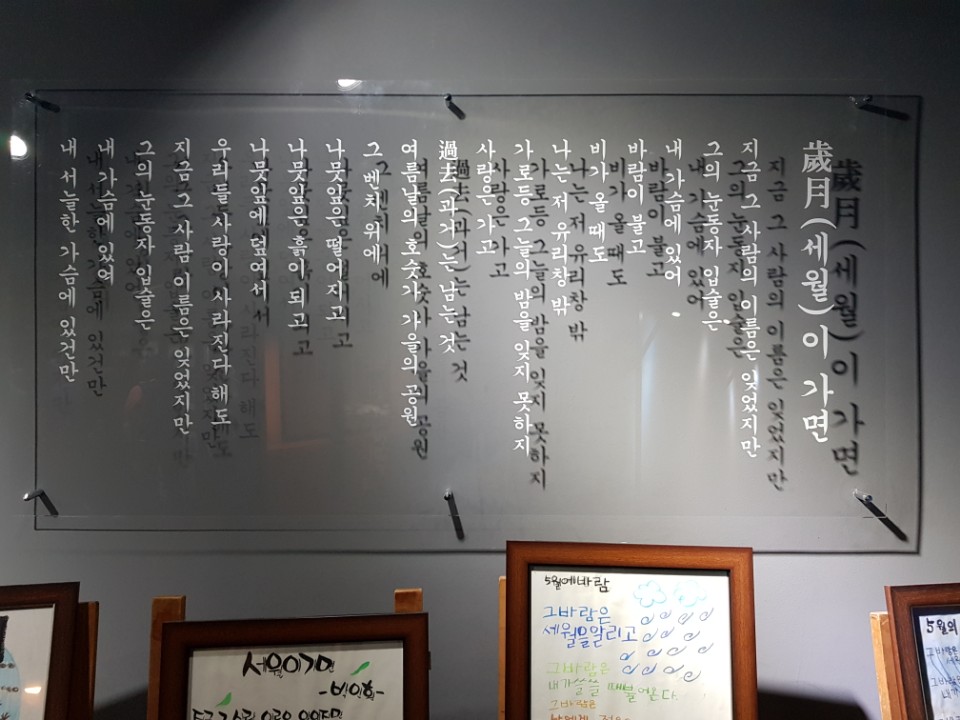 歲月(세월)이 가면
지금 그 사람의 이름은 잊었지만
그의 눈동자 입술은
내 가슴에 있어
바람이 불고
비가 올 때도
나는 저 유리창 밖
가로등 그늘의 밤을 잊지 못하지
사랑은 가고
過去(과거)는 남는 것
여름날의 호숫가 가을의 공원
그 벤치 위에
나뭇잎은 떨어지고
나뭇잎은 흙이 되고
나뭇잎에 덮여서
우리들 사랑이 사라진다 해도
지금 그 사람 이름은 잊었지만
그의 눈동자 입술은
내 가슴에 있어
내 서늘한 가슴에 있건만
세월이 가면
-박인환-
5월에 바람
그바람은
세월을알리고
그바람은
내가쓸쓸 때불어온다
그바람은
5월의
그바람은